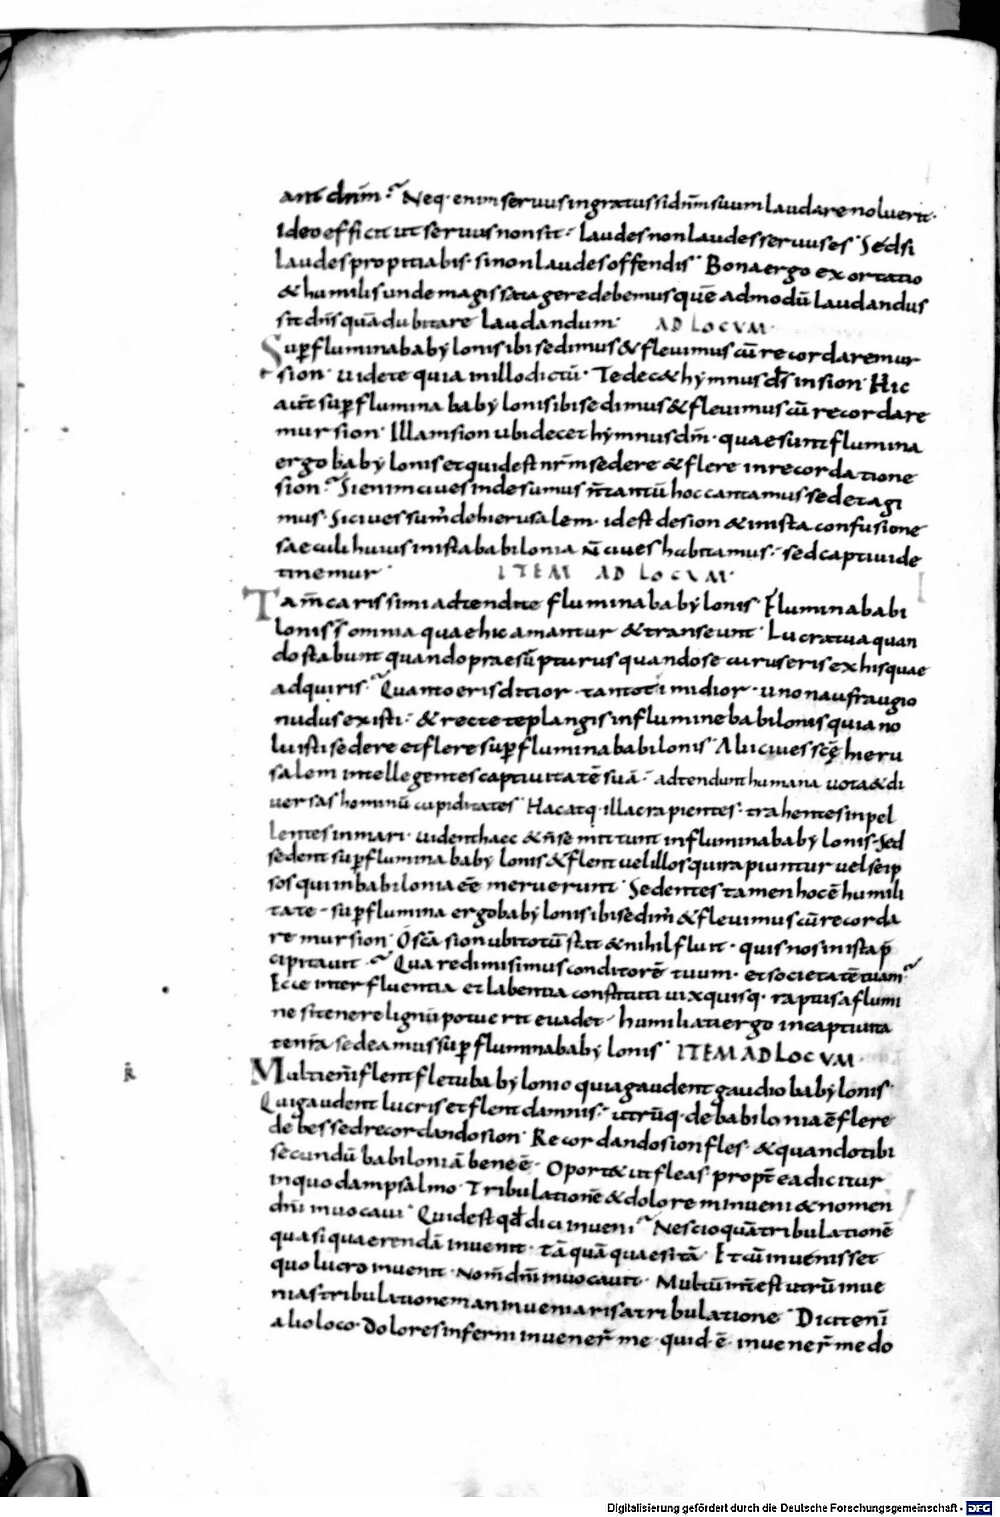 ant dnm̄. Neq· enim servus ingratus si dnm̄ suum laudare noluerit·
Ideo efficit ut servus non sit· laudes non laudes servus es· Sed si
laudes propitiabis· si non laudes offendis· Bona ergo exortatio
& humilis unde magis satagere debemus quē admodū laudandus
sit dn̄s quā dubitare laudandum· AD LOCVM·
Sup̄ flumina babylonis ibi sedimus & flevimus cū recordaremur
sion· videte quia in illo dictū· Te dec& hymnus d̄s in sion· Hic
aut̄ sup̄ flumina babylonis ibi sedimus & flevimus cū recordare
mur sion· Illam sion ubi decet hymnus dm̄· quae sunt flumina
ergo babylonis et quid est nr̄m sedere & flere in recordatione
sion· Si enim cives inde sumus n̄ tantū hoc cantamus sed et agi
mus· Si cives sum̄ de hierusalem· id est de sion & in ista confusione
saeculi huius in ista babilonia n̄ cives habitamus· sed captivi de
tinemur· ITEM AD LOCVM·
Tam̄ carissimi adtendite flumina babylonis· Flumina babi
lonis s̄ omnia quae hic amantur & transeunt· Lucra tua quan
do stabunt quando praesūpturus quando securus eris ex his quae
adquiris· Quanto eris ditior· tanto timidior· uno naufraugio
nudus existi· & recte te plangis in flumine babilonis quia no
luisti sedere et flere sup̄ flumina babilonis· Alii cives scē hieru
salem intellegentes captivitatē suā· adtendunt humana vota & di
versas hominū cupiditates· Hac atq· illac rapientes· trahentes inpel
lentes in mari· vident haec & n̄ se mittunt in flumina babylonis· Sed
sedent sup̄ flumina babylonis & flent vel illos qui rapiuntur vel se ip
sos qui in babilonia eē meruerunt· Sedentes tamen hoc ē humili
tate· sup̄ flumina ergo babylonis ibi sedim̄ & flevimus cū recorda
remur sion· O scā sion ubi totū stat & nihil fluit· quis nos in ista p̄
cipitavit· Quare dimisimus conditorē tuum· et societatē tuam·
Ecce inter fluentia et labentia constituti vix quisq· raptus a flumi
ne si tenere lignū potuerit evadet· humiliati ergo in captivita
te nr̄a sedeamus sup̄ flumina babylonis· ITEM AD LOCVM·
Multi enī flent fletu babylonio quia gaudent gaudio babylonis·
Qui gaudent lucris et flent damnis· utrūq· de babilonia ē flere
debes sed recordando sion· Recordando sion fles· & quando tibi
secundū babiloniā bene ē· Oport& ut fleas· propt̄ ea dicitur
in quodam psalmo· Tribulationē & dolorem inveni & nomen
dn̄i invocavi· Quid est qd̄ dici inveni· Nescio quā tribulationē
quasi quaerendā invenit· tā quā quaesitā· Et cū invenisset
quo lucro invenit· Nom̄ dn̄i invocavit· Multū int̄est utrū inve
nias tribulationem an inveniaris a tribulatione· Dicit enī
alio loco· Dolores inferni invener̄ me· quid· ē· invener̄ me do
R̄
Digitalisierung gefördert durch die Deutsche Forschungsgemeinschaft - DFG